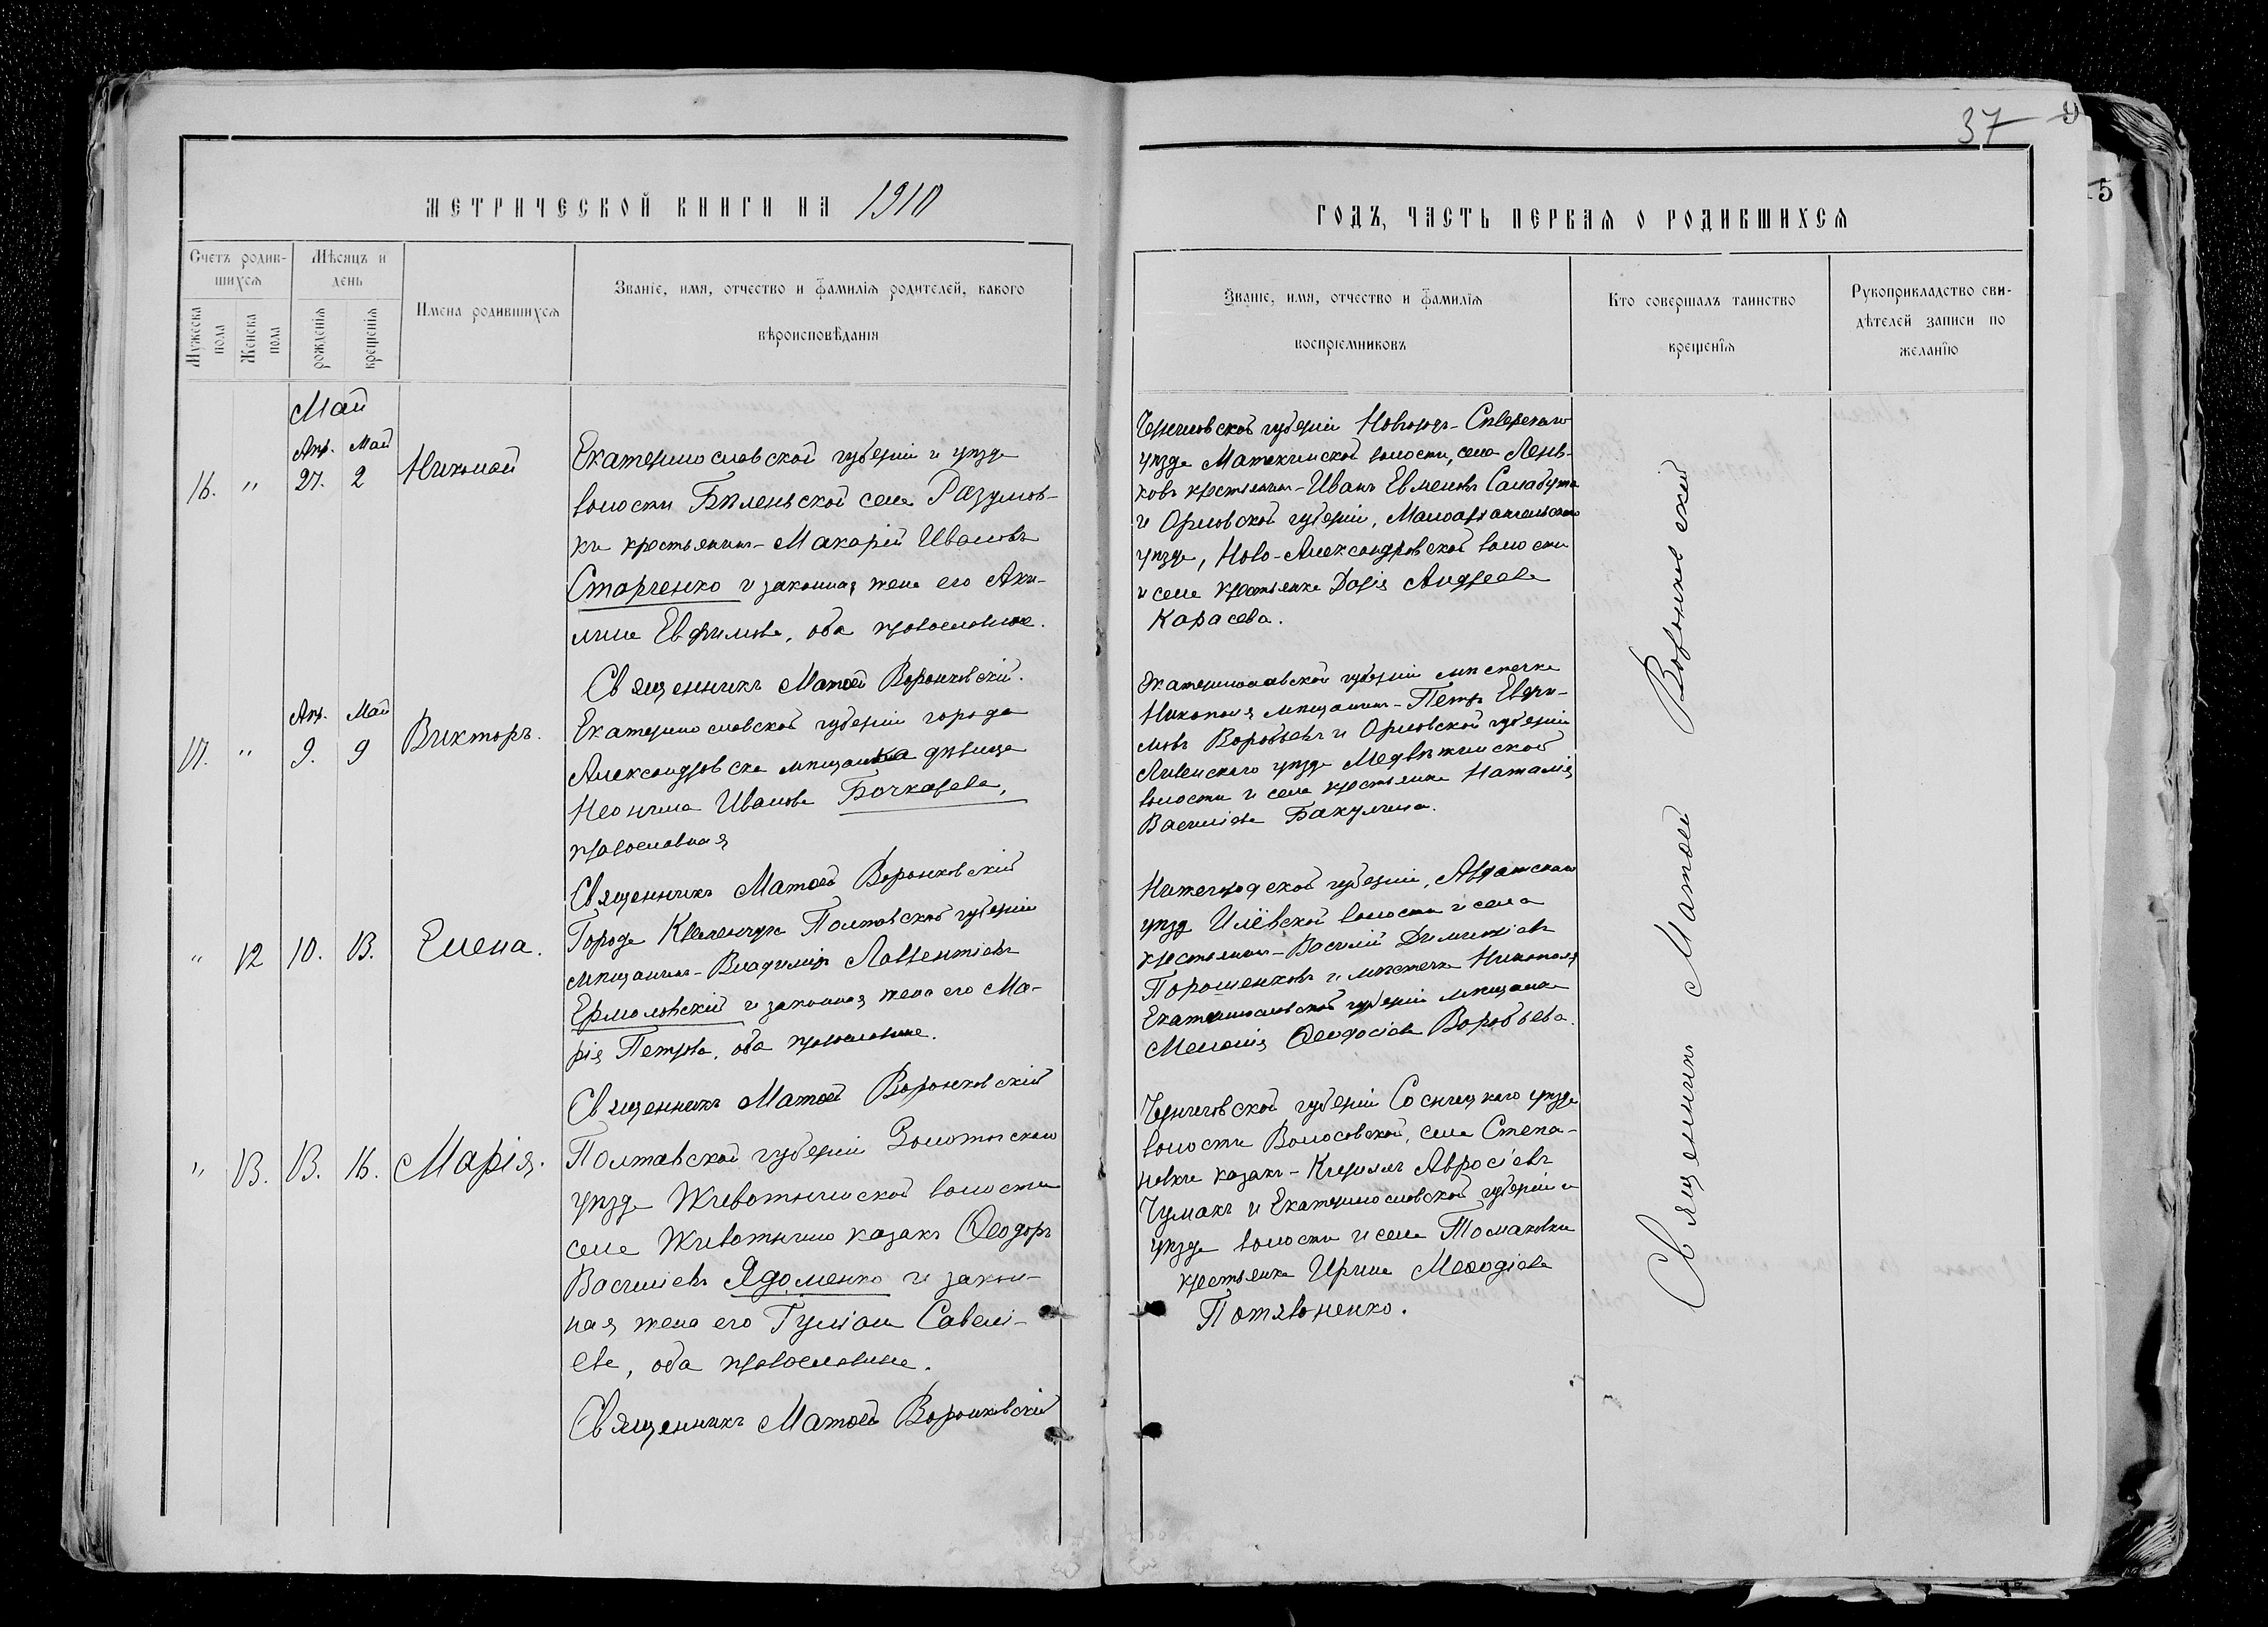 37
5
МЕТРИЧЕСКОЙ КНИГИ НА 1910
ГОДЪ, ЧАСТЬ ПЕРВАЯ О РОДИВШИХСЯ
Счетъ родив-
шихся
Мужеска пола
Женска пола
Мѣсяцъ и
день
рожденія
крещенія
Имена родившихся
Званіе, имя, отчество и фамилія родителей, какого
вѣроисповѣданія
Званіе, имя, отчество и фамилія
воспріемниковъ
Кто совершалъ таинство
крещенія
Рукоприкладство сви-
дѣтелей записи по
желанію
Май
Апр. Май
16. " 27. 2 Никонъ
Екатеринославской губерніи и уѣзда
волости Бѣленьской села Разумов-
ки крестьянинъ - Макарій Ивановъ
Старченко и законная жена его Аки-
лина Евфимова, оба православные.
Священникъ Матѳей Воронковскій.
Черниговской губерніи Новгородъ-Сѣверскаго
уѣзда Матекинской волости, села Лень-
ковъ крестьянинъ - Иванъ Евменовъ Салабута
и Орловской губерніи, Малоархангельскаго
уѣзда, Ново-Александровской волости
и села крестьянка Дарія Андреева
Карасева.
Апр. Май
17. " 9. 9 Викторъ.
Екатеринославской губерніи города
Александровска мѣщанка дѣвица
Неонила Иванова Бочкарева,
православная
Священникъ Матѳей Воронковскій
Екатеринославской губерніи мѣстечка
Никополя мѣщанинъ - Петръ Евфи-
мовъ Воробьевъ и Орловской губерніи
Ливенскаго уѣзда Медвѣжинской
волости и села крестьянка Наталія
Василіева Бакулина.
" 12 10. 13. Елена.
Города Кременчуга Полтавской губерніи
мѣщанинъ - Владиміръ Лаврентіевъ
Ермоловскій и законная жена его Ма-
рія Петрова, оба православные.
Священникъ Матѳей Воронковскій
Нижегородской губерніи, Ардатскаго
уѣзд Илёвской волости и села
крестьянинъ - Василій Димитріевъ
Порошенковъ и мѣстечка Никополя
Екатеринославской губерніи мѣщанка
Меланія Ѳеодосіева Воробьева.
" 13. 13. 16. Марія.
Полтавской губерніи Золотоноскаго
уѣзда Животниской волости
села Животнино казакъ Ѳеодоръ
Василіевъ Ядоменко и закон-
ная жена его Гуліан Савелі-
ева, оба православные.
Священникъ Матѳей Воронковскій
Черниговской губерніи Сосницкаго уѣзда
волости Волосовской, села Степа-
новки казакъ - Кириллъ Авросіевъ
Чумакъ и Екатеринославской губерніи и
уѣзда волости и села Томаковки
крестьянка Ирина Меѳодіева
Потявоненко.
Священникъ Матѳей Воронковскій